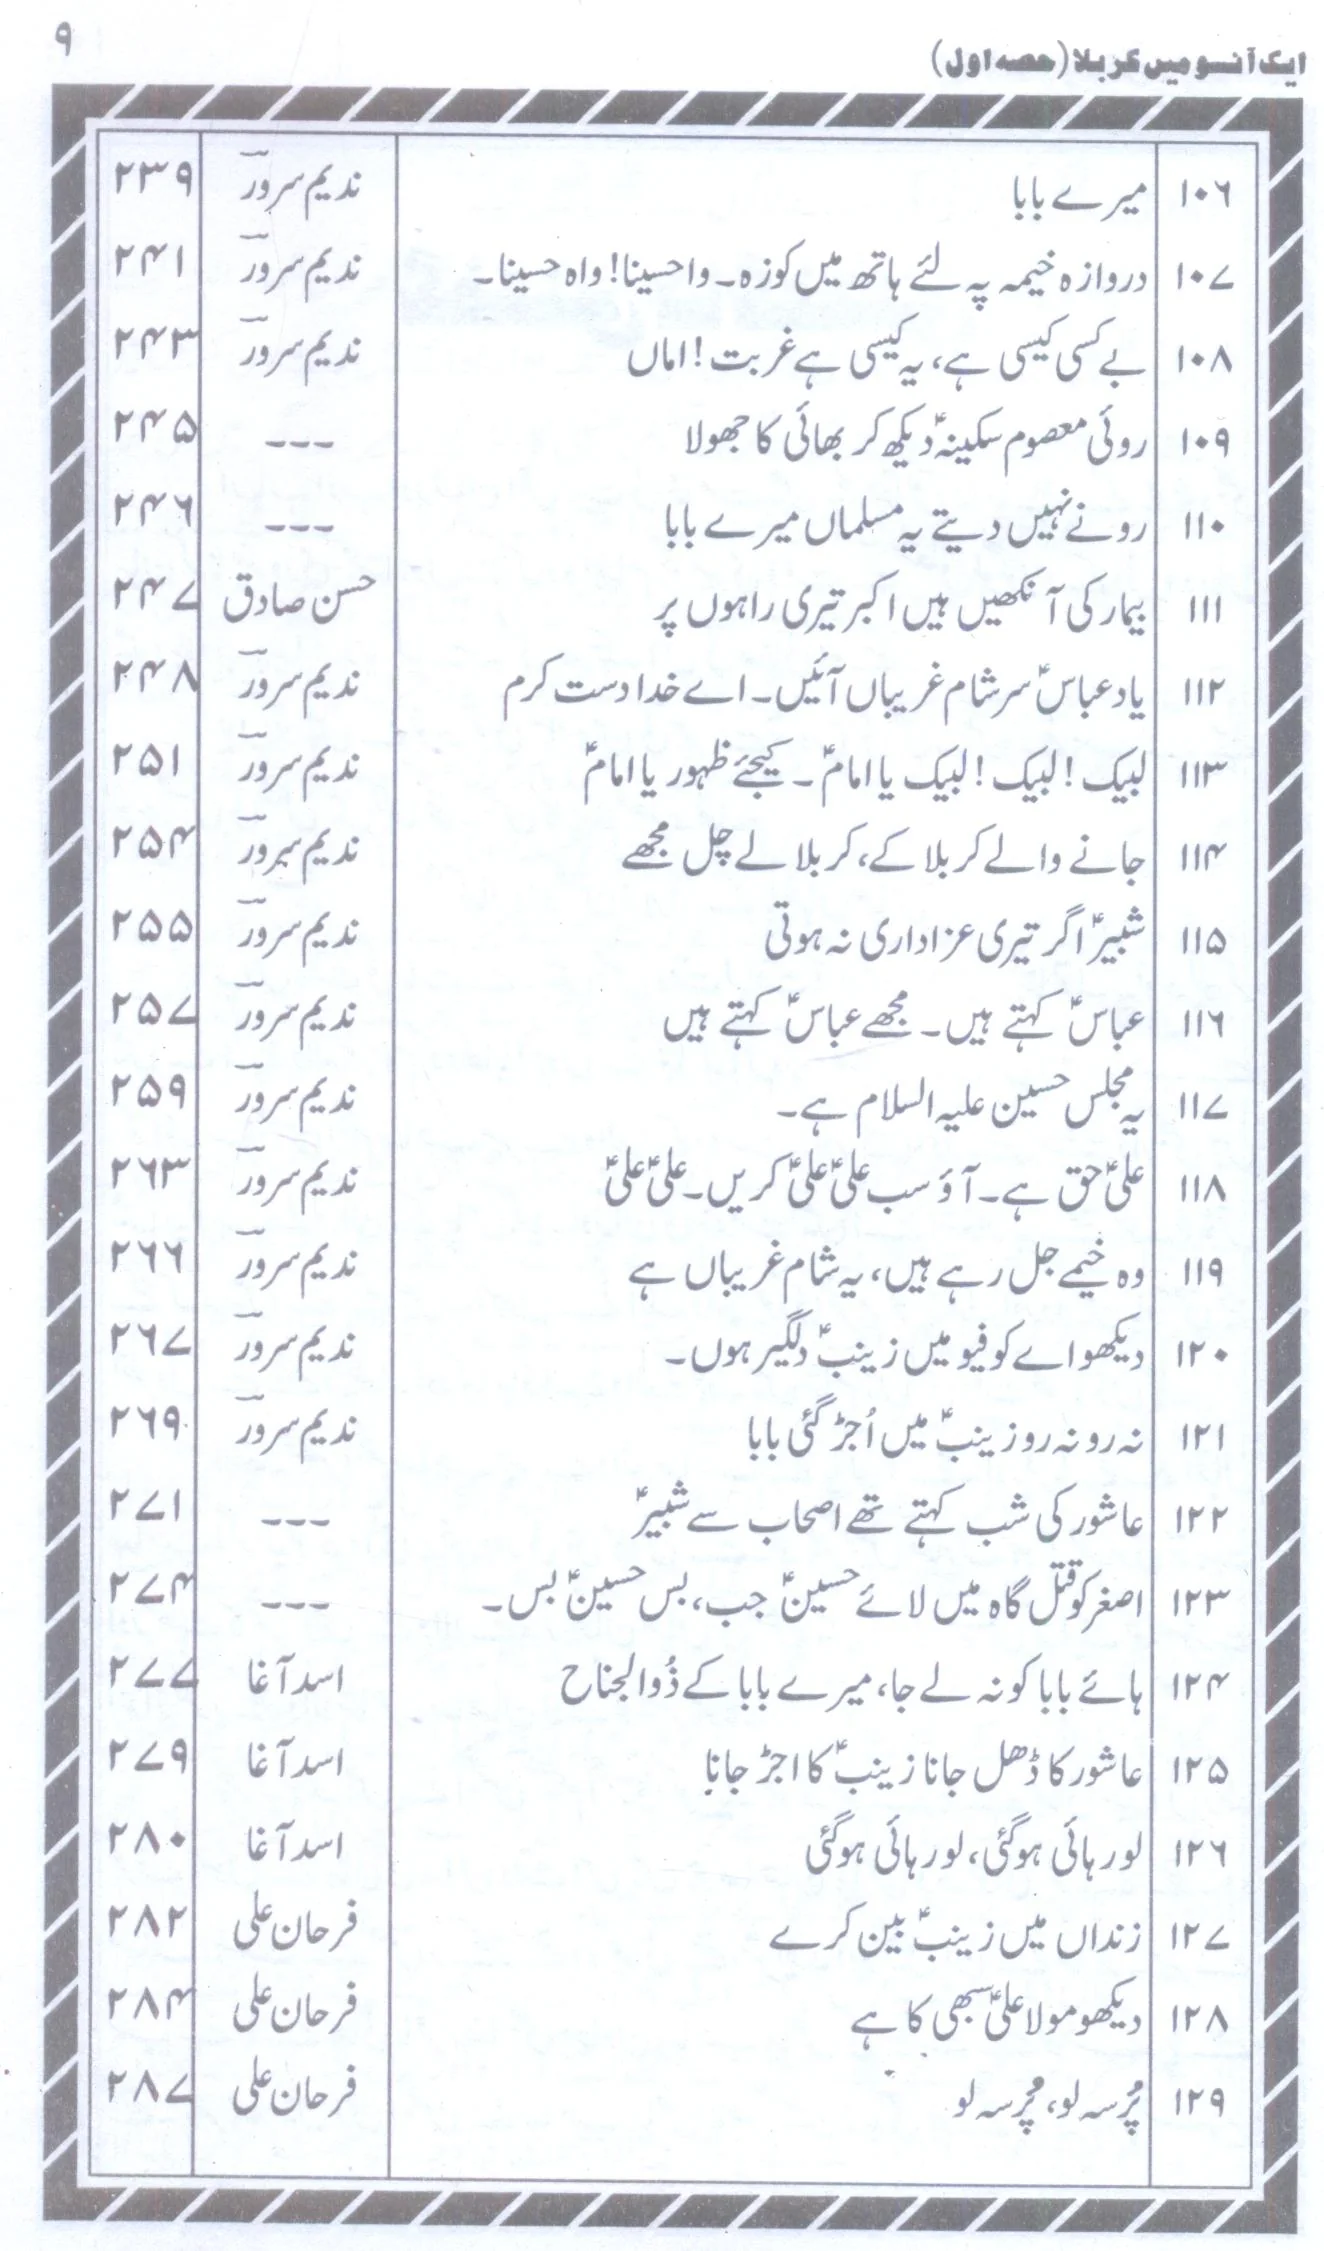 ایک آنسو میں کربلا (حصہ اول) ۹
۱۰۶ میرے بابا ندیم سرور ۲۳۹
۱۰۷ دروازہ خیمہ پہ لئے ہاتھ میں کوزہ۔ واحسینا! واہ حسینا۔ ندیم سرور ۲۴۱
۱۰۸ بے کسی کیسی ہے، یہ کیسی ہے غربت! اماں ندیم سرور ۲۴۳
۱۰۹ روئی معصوم سکینہؑ دیکھ کر بھائی کا جھولا --- ۲۴۵
۱۱۰ رونے نہیں دیتے یہ مسلماں میرے بابا --- ۲۴۶
۱۱۱ بیمار کی آنکھیں ہیں اکبر تیری راہوں پر حسن صادق ۲۴۷
۱۱۲ یاد عباسؑ سر شام غریباں آئیں۔ اے خدا دست کرم ندیم سرور ۲۴۸
۱۱۳ لبیک! لبیک! لبیک یا امامؑ۔ کیجئے ظہور یا امامؑ ندیم سرور ۲۵۱
۱۱۴ جانے والے کربلا کے، کربلا لے چل مجھے ندیم سرور ۲۵۴
۱۱۵ شبیرؑ اگر تیری عزاداری نہ ہوتی ندیم سرور ۲۵۵
۱۱۶ عباسؑ کہتے ہیں۔ مجھے عباسؑ کہتے ہیں ندیم سرور ۲۵۷
۱۱۷ یہ مجلس حسین علیہ السلام ہے۔ ندیم سرور ۲۵۹
۱۱۸ علیؑ حق ہے۔ آؤ سب علیؑ علیؑ کریں۔ علیؑ علیؑ ندیم سرور ۲۶۳
۱۱۹ وہ خیمے جل رہے ہیں، یہ شام غریباں ہے ندیم سرور ۲۶۶
۱۲۰ دیکھو اے کوفیو میں زینبؑ دلگیر ہوں۔ ندیم سرور ۲۶۷
۱۲۱ نہ رو نہ رو زینبؑ میں اُجڑ گئی بابا ندیم سرور ۲۶۹
۱۲۲ عاشور کی شب کہتے تھے اصحاب سے شبیرؑ --- ۲۷۱
۱۲۳ اصغر کو قتل گاہ میں لائے حسینؑ جب، بس حسینؑ بس۔ --- ۲۷۴
۱۲۴ ہائے بابا کو نہ لے جا، میرے بابا کے ذُوالجناح اسد آغا ۲۷۷
۱۲۵ عاشور کا ڈھل جانا زینبؑ کا اجڑ جانا اسد آغا ۲۷۹
۱۲۶ لو رہائی ہوگئی، لو رہائی ہوگئی اسد آغا ۲۸۰
۱۲۷ زنداں میں زینبؑ بین کرے فرحان علی ۲۸۲
۱۲۸ دیکھو مولا علیؑ سبھی کا ہے فرحان علی ۲۸۴
۱۲۹ پُرسہ لو، پُرسہ لو فرحان علی ۲۸۷